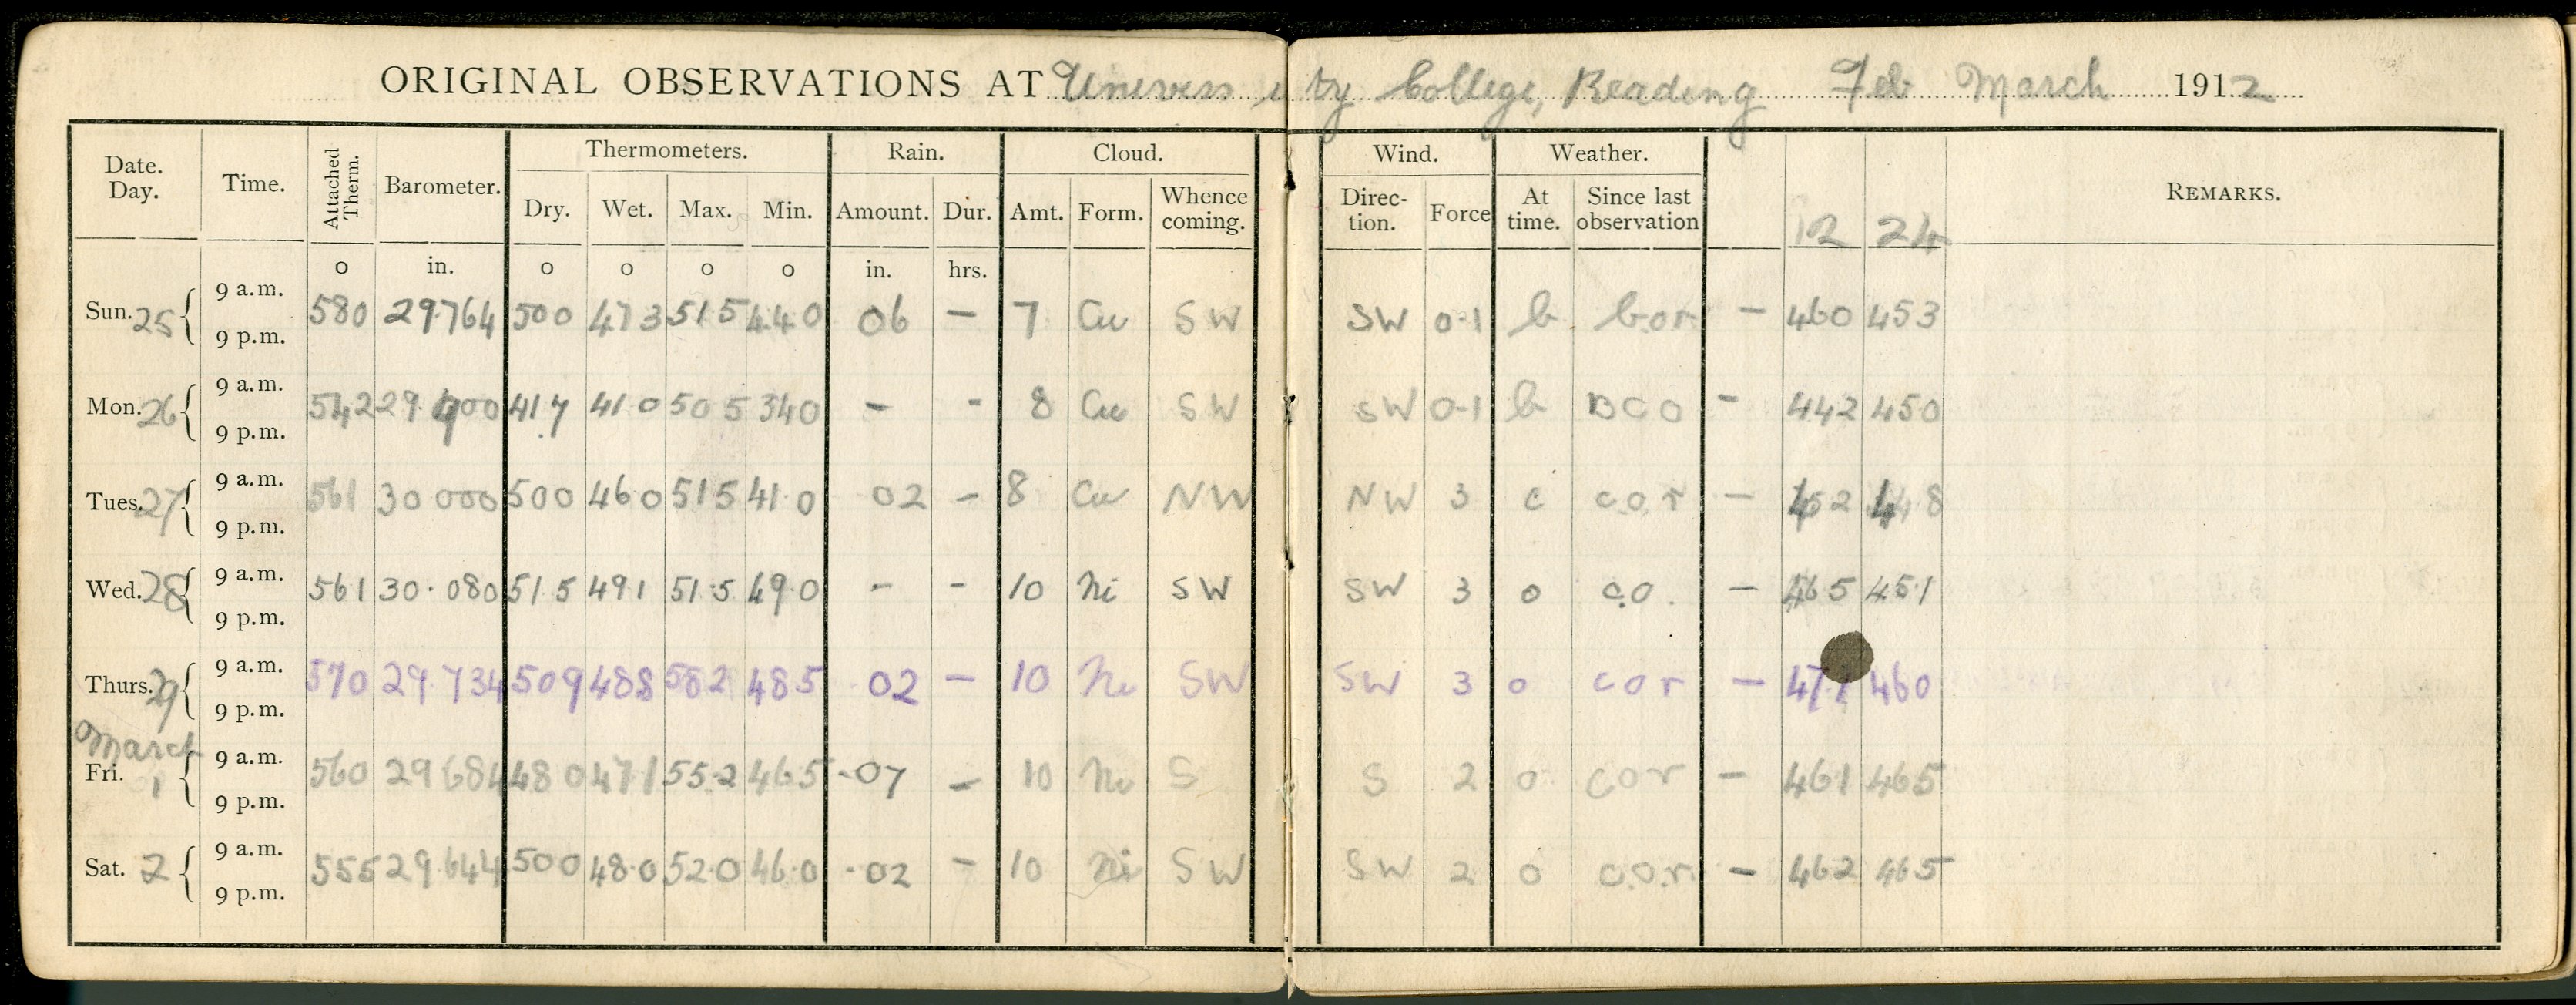 ORIGINAL OBSERVATIONS AT University College, Reading Feb March 1912
Date. Day. Time. Attached Therm. Barometer. Thermometers. Rain. Cloud. Wind. Weather. REMARKS.
Dry. Wet. Max. Min. Amount. Dur. Amt. Form. Whence coming. Direc- tion. Force At time. Since last observation 12 24
o in. o o o o in. hrs.
9 a.m.
Sun. 25 580 29.764 500 473 515 440 06 – 7 Cu SW SW 0-1 b b.o.r – 460 453
9 p.m.
9 a.m.
Mon. 26 542 29 900 417 410 505 340 – - 8 Cu SW SW 0-1 b bco - 442 450
9 p.m.
9 a.m.
Tues. 27 561 30 000 500 460 515 41.0 02 – 8 Cu NW NW 3 c c.o.r – 452 448
9 p.m.
9 a.m.
Wed. 28 561 30.080 515 491 51.5 49.0 - - 10 Ni SW SW 3 o c.o. – 465 451
9 p.m.
9 a.m.
Thurs. 29 570 29.734 509 488 485 02 – 10 Ni SW SW 3 o cor – 460
9 p.m.
March
9 a.m.
Fri. 1 560 29 684 480 471 55.2 465 .07 – 10 Ni S S 2 o cor – 461 465
9 p.m.
9 a.m.
Sat. 2 555 29.644 500 48.0 52.0 46.0 .02 – 10 Ni SW SW 2 o c.o.r – 462 465
9 p.m.